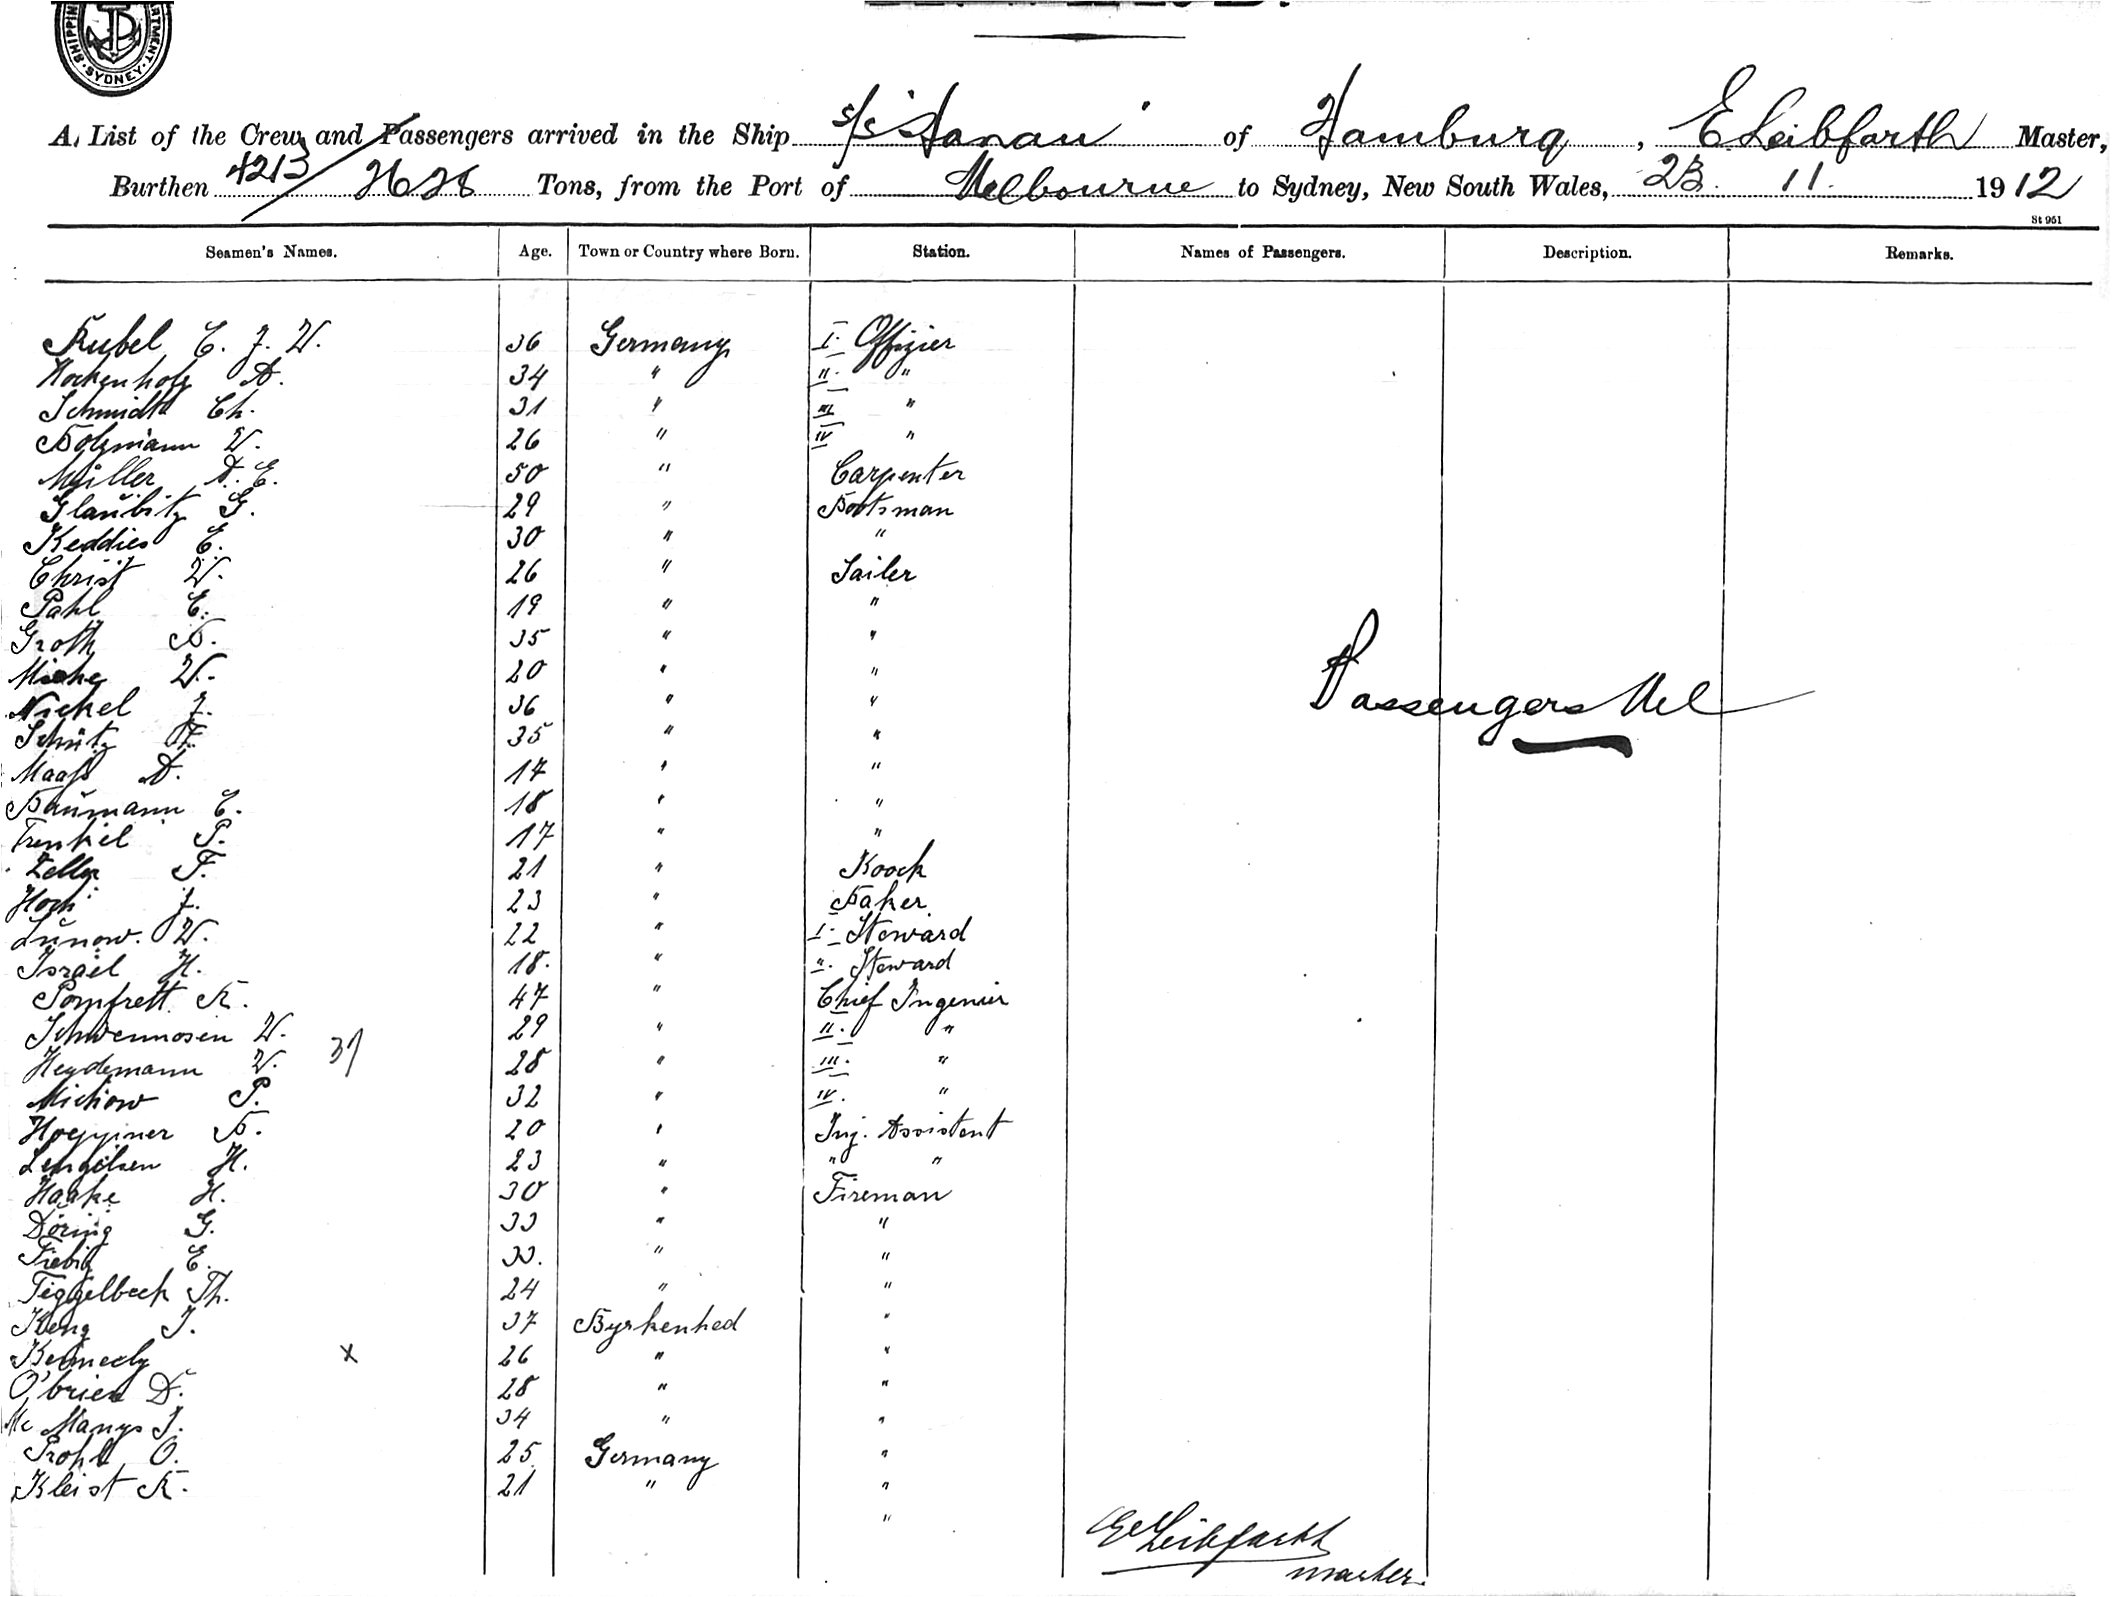 SHIPPING DEPARTMENT SYDNEY
A List of the Crew and Passengers arrived in the Ship s/s "Hanau" of Hamburg, E Leibfarth Master,
Burthen 4213 / 2626 Tons, from the Port of Melbourne to Sydney, New South Wales, 23. 11. 1912
St 951
Seamen's Names. Age. Town or Country where Born. Station. Names of Passengers. Description. Remarks.
Kubel E. J. W. 36 Germany I. Offizier
Hockenholz A. 34 " II. "
Schmidt Ch. 31 " III "
Bolzmann W. 26 " IV "
Müller A. E. 50 " Carpenter
Glaubitz G. 29 " Bootsman
Keddies E. 30 " "
Christ W. 26 " Sailer
Pahl E. 19 " "
Groth B. 35 " "
W. 20 " "
Nickel J. 36 " "
Passengers Nil
Schütz 35 " "
Maaß A. 17 " "
Baumann E. 18 " "
Frenkel P. 17 " "
Zeller F. 21 " Koock
Hoch J. 23 " Baker
Lunow. W. 22 " I. Steward
Israel H. 18. " II. Steward
Pomfrett K. 47 " Chief Ingenier
Schwennosen W. 29 " II. "
Heydemann W. 31 28 " III. "
Michow P. 32 " IV. "
B. 20 " Ing. Assistent
Lengelsen H. 23 " " "
Haake H. 30 " Fireman
Döring G. 33 " "
Fiebig E. 33. " "
Tiggelbeck Th. 24 " "
J. 37 Byrkenhed "
Kennedy x 26 " "
O'brien D. 28 " "
Mc Manys J. 34 " "
Prohl O. 25 Germany "
Kleist K. 21 " "
"
E Leibfarth
master.